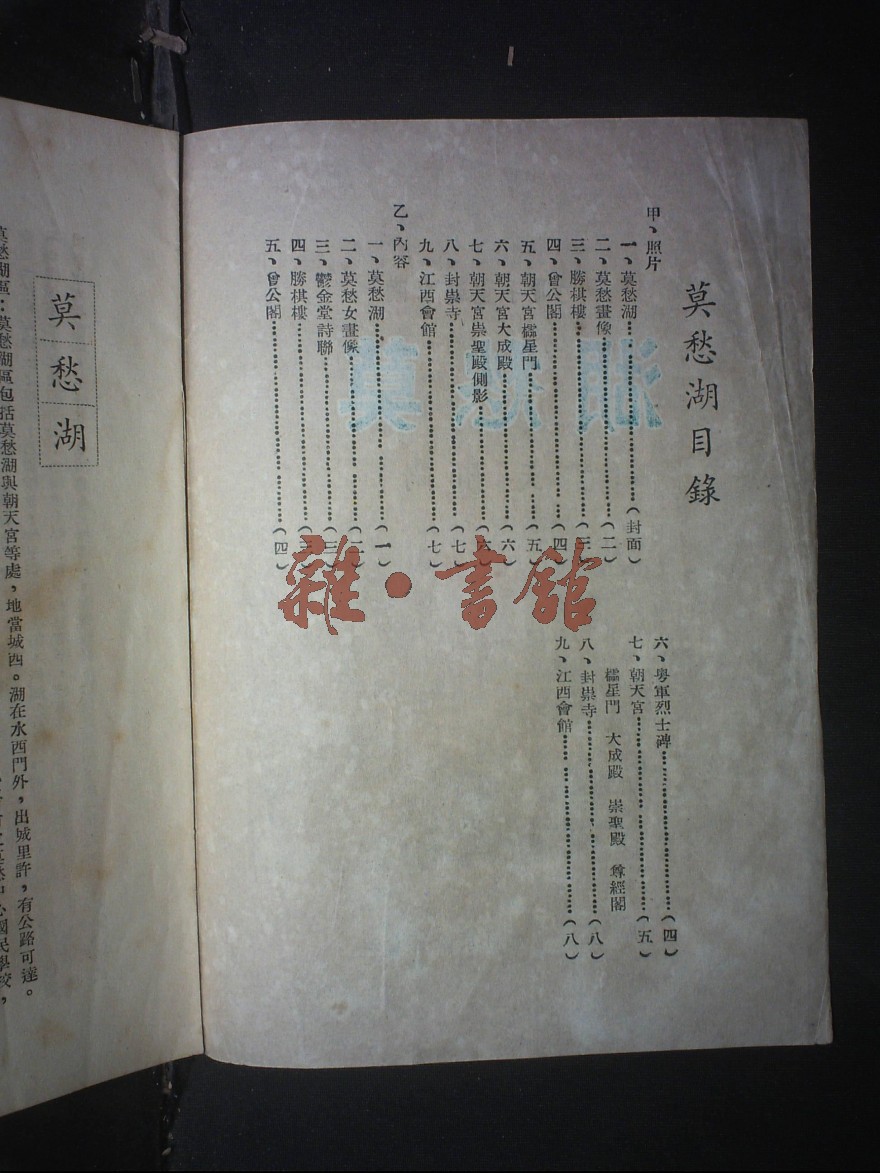 莫愁湖目錄
甲、照片
一、莫愁湖………(封面)
二、莫愁畫像………(二)
三、勝棋樓………(三)
四、曾公閣………(四)
五、朝天宮櫺星門………(五)
六、朝天宮大成殿………(六)
七、朝天宮崇聖殿側影………(六)
八、封崇寺………(七)
九、江西會館………(七)
乙、內容
一、莫愁湖………(一)
二、莫愁女畫像………(二)
三、鬱金堂詩聯………(三)
四、勝棋樓………(三)
五、曾公閣………(四)
六、粵軍烈士碑………(四)
七、朝天宮………(五)
櫺星門 大成殿 崇聖殿 尊經閣
八、封崇寺………(八)
九、江西會館………(八)
莫愁湖
莫愁湖區:莫愁湖區包括莫愁湖與朝天宮等處,地當城西。湖在水西門外,出城里許,有公路可達。
國民學校,
莫愁湖
雜·書館